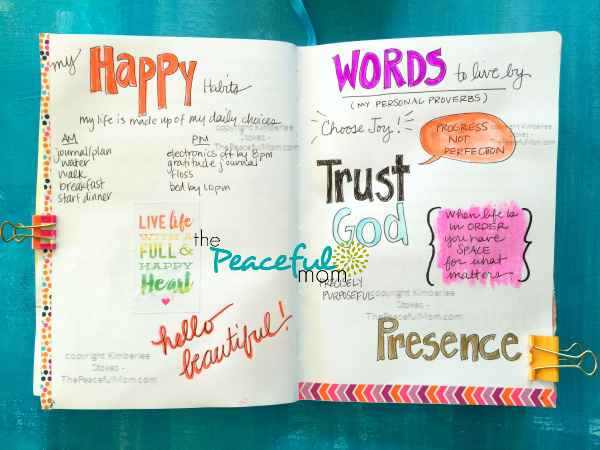 my HAPPY Habits
my life is made up of my daily choices
copyright Kimberlee
Stokes -
ThePeacefulMom.com
AM
journal/plan
water
walk
breakfast
start dinner
PM
electronics off by 8pm
gratitude journal
floss
bed by 10pm
LIVE life
WITH A
FULL &
HAPPY
Heart
the
Peaceful
mom
hello
beautiful!
copyright Kimberlee
Stokes -
ThePeacefulMom.com
WORDS to live by
(MY PERSONAL PROVERBS)
Choose Joy!
PROGRESS
NOT
PERFECTION
copyright Kimberlee
Stokes -
ThePeacefulMom.com
Trust
God
When life is
in ORDER
you have
SPACE
for what
matters.
PRECISELY
PURPOSEFUL
copyright Kimberlee
Stokes -
ThePeacefulMom.com
Presence